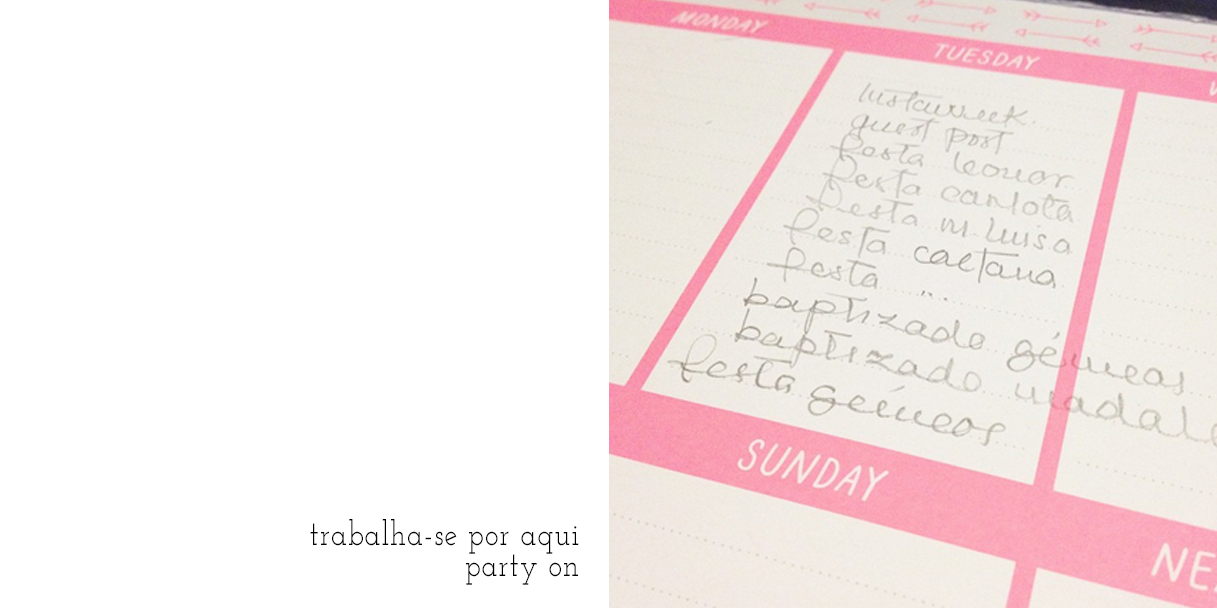 MONDAY
TUESDAY
instaweek
guest post
festa leonor
festa carlota
festa m. luisa
festa caetana
festa ...
baptizado gémeas
baptizado madale
festa gémeos
SUNDAY
NE
trabalha-se por aqui
party on